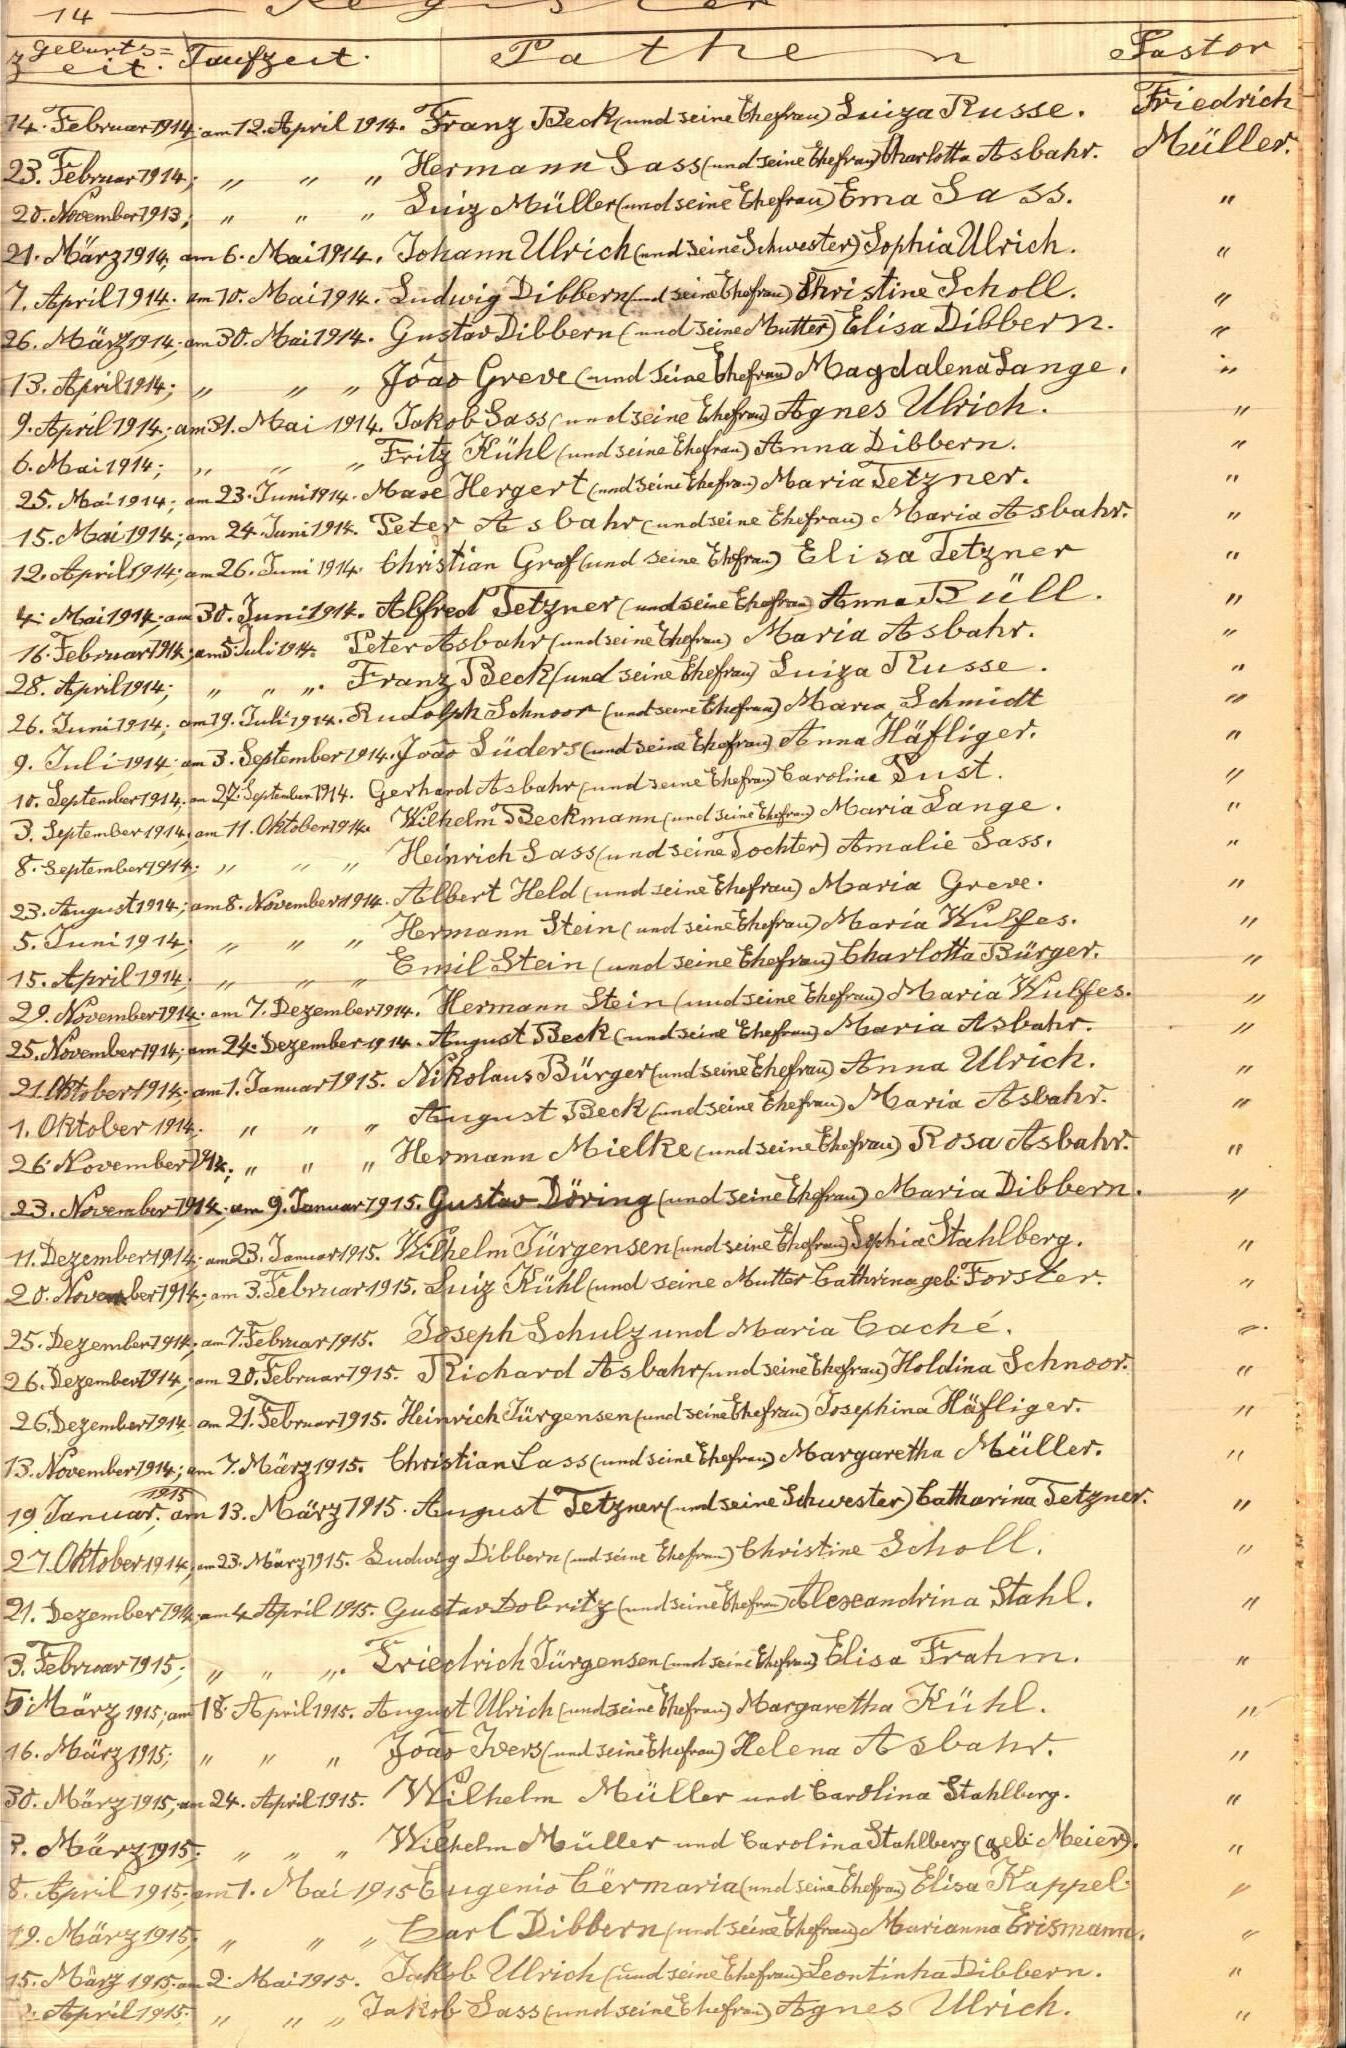 14 Register
Geburtszeit. Taufzeit. Pathen Pastor
14. Februar 1914; am 12. April 1914. Franz Beck (und seine Ehefrau) Luiza Russe. Friedrich
23. Februar 1914; " " " Hermann Sass (und seine Ehefrau) Charlotta Asbahr. Müller.
20. November 1913; " " " Luiz Müller (und seine Ehefrau) Ema Sass. "
21. März 1914; am 6. Mai 1914. Johann Ulrich (und seine Schwester) Sophia Ulrich. "
7. April 1914. am 10. Mai 1914. Ludwig Dibbern (und seine Ehefrau) Christine Scholl. "
26. März 1914; am 30. Mai 1914. Gustav Dibbern (und seine Mutter) Elisa Dibbern. "
13. April 1914; " " " João Greve (und seine Ehefrau) Magdalena Lange. "
9. April 1914; am 31. Mai 1914. Jakob Sass (und seine Ehefrau) Agnes Ulrich. "
6. Mai 1914; " " " Fritz Kühl (und seine Ehefrau) Anna Dibbern. "
25. Mai 1914; am 23. Juni 1914. Max Hergert (und seine Ehefrau) Maria Tetzner. "
15. Mai 1914; am 24. Juni 1914. Peter Asbahr (und seine Ehefrau) Maria Asbahr. "
12. April 1914; am 26. Juni 1914. Christian Graf (und seine Ehefrau) Elisa Tetzner "
4. Mai 1914; am 30. Juni 1914. Alfred Tetzner (und seine Ehefrau) Anna Büll. "
16. Februar 1914; am 5. Juli 1914. Peter Asbahr (und seine Ehefrau) Maria Asbahr. "
28. April 1914; " " " Franz Beck (und seine Ehefrau) Luiza Russe. "
26. Juni 1914; am 19. Juli 1914. Rudolph Schnoor (und seine Ehefrau) Maria Schmidt "
9. Juli 1914; am 3. September 1914. João Lüders (und seine Ehefrau) Anna Häfliger. "
10. September 1914; am 27. September 1914. Gerhard Asbahr (und seine Ehefrau) Carolina Sust. "
3. September 1914; am 11. Oktober 1914. Wilhelm Beckmann (und seine Ehefrau) Maria Lange. "
8. September 1914; " " " Heinrich Sass (und seine Tochter) Amalie Sass. "
23. August 1914; am 8. November 1914. Albert Held (und seine Ehefrau) Maria Greve. "
5. Juni 1914; " " " Hermann Stein (und seine Ehefrau) Maria Wulfes. "
15. April 1914; " " " Emil Stein (und seine Ehefrau) Charlotta Bürger. "
29. November 1914. am 7. Dezember 1914. Hermann Stein (und seine Ehefrau) Maria Wulfes. "
25. November 1914; am 24. Dezember 1914. August Beck (und seine Ehefrau) Maria Asbahr. "
21. Oktober 1914; am 1. Januar 1915. Nikolaus Bürger (und seine Ehefrau) Anna Ulrich. "
1. Oktober 1914; " " " August Beck (und seine Ehefrau) Maria Asbahr. "
26. November 1914; " " " Hermann Mielke (und seine Ehefrau) Rosa Asbahr. "
23. November 1914; am 9. Januar 1915. Gustav Döring (und seine Ehefrau) Maria Dibbern. "
11. Dezember 1914; am 23. Januar 1915. Wilhelm Jürgensen (und seine Ehefrau) Sophia Stahlberg. "
20. November 1914; am 3. Februar 1915. Luiz Kühl (und seine Mutter Cathrina geb. Forster. "
25. Dezember 1914; am 7. Februar 1915. Joseph Schulz und Maria Caché. "
26. Dezember 1914; am 20. Februar 1915. Richard Asbahr (und seine Ehefrau) Holdina Schnoor. "
26. Dezember 1914. am 21. Februar 1915. Heinrich Jürgensen (und seine Ehefrau) Josephina Häfliger. "
13. November 1914; am 7. März 1915. Christian Sass (und seine Ehefrau) Margaretha Müller. "
19 Januar 1915. am 13. März 1915. August Tetzner (und seine Schwester) Catharina Tetzner. "
27. Oktober 1914; am 23. März 1915. Ludwig Dibbern (und seine Ehefrau) Christine Scholl. "
21. Dezember 1914; am 4. April 1915. Gustav Dobritz (und seine Ehefrau) Alexandrina Stahl. "
3. Februar 1915; " " " Friedrich Jürgensen (und seine Ehefrau) Elisa Frahm. "
5. März 1915; am 18. April 1915. August Ulrich (und seine Ehefrau) Margaretha Kühl. "
16. März 1915; " " " João Ivers (und seine Ehefrau) Helena Asbahr. "
30. März 1915; am 24. April 1915. Wilhelm Müller und Carolina Stahlberg. "
März 1915; " " " Wilhelm Müller und Carolina Stahlberg (geb. Meier). "
8. April 1915; am 1. Mai 1915 Eugenio Cërmaria (und seine Ehefrau) Elisa Kappel. "
19. März 1915; " " " Carl Dibbern (und seine Ehefrau) Marianna Erismann. "
15. März 1915 am 2. Mai 1915. Jakob Ulrich (und seine Ehefrau) Leontinha Dibbern. "
April 1915; " " " Jakob Sass (und seine Ehefrau) Agnes Ulrich. "